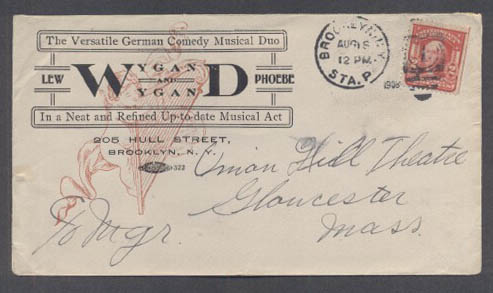 The Versatile German Comedy Musical Duo
LEW WYGAN AND WYGAND PHOEBE
In a Neat and Refined Up-to-date Musical Act
205 HULL STREET,
BROOKLYN, N. Y.
BROOKLYN, N.Y.
AUG
12 PM
STA. P.
Union Hill Theatre
Gloucester
Mass.
c/o Mgr.